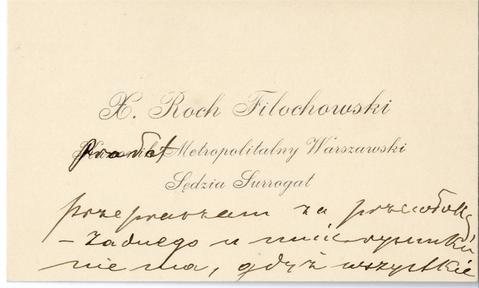 X. Roch Filochowski
Prałat
Kanonik Metropolitalny Warszawski
Sędzia Surrogat
przepraszam za przewłokę
– żadnego u mnie rysunku
nie ma, gdyż wszystkie